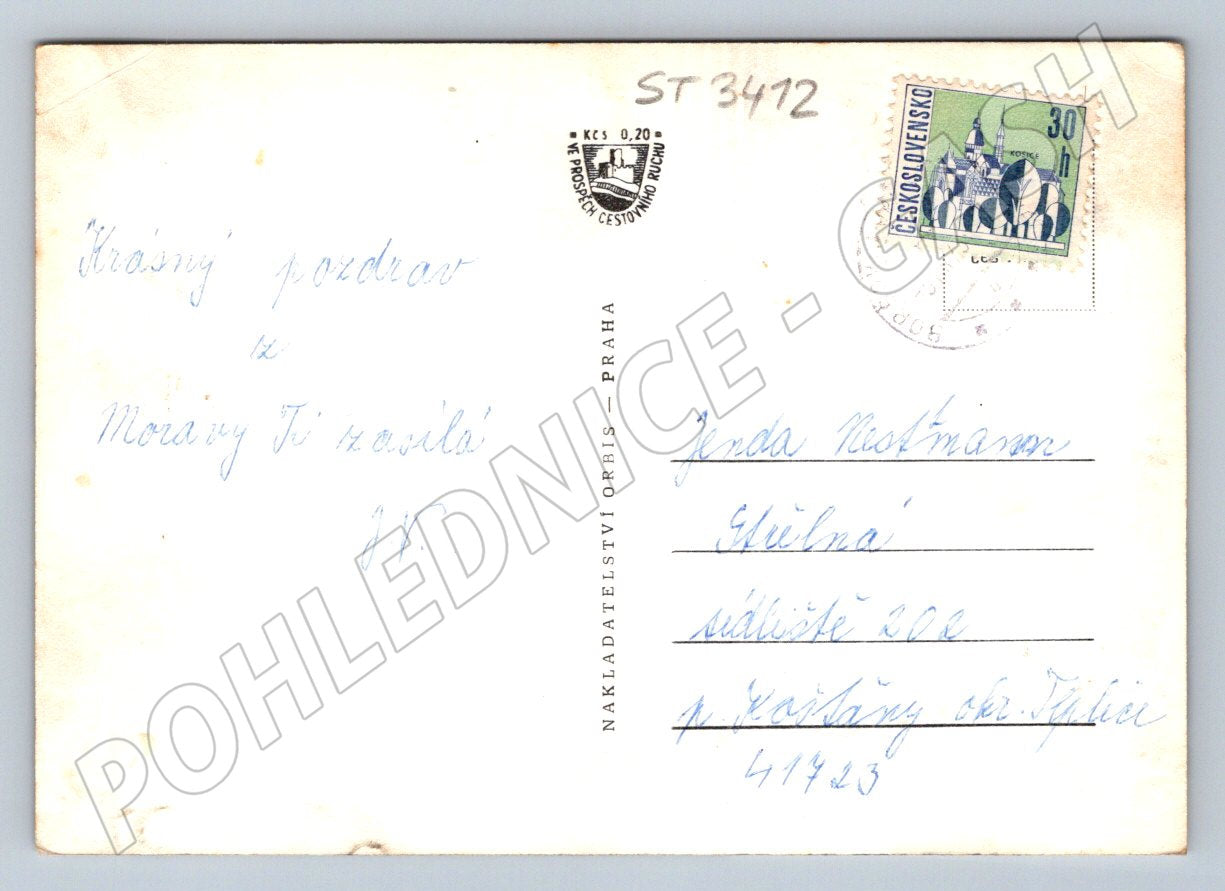 ST 3412
Kčs 0,20
VE PROSPĚCH CESTOVNÍHO RUCHU
ČESKOSLOVENSKO
30 h
KOŠICE
Krásný pozdrav
z
Moravy Ti zasílá
J V.
NAKLADATELSTVÍ ORBIS — PRAHA
Jenda
Střelná
sídliště 202
p. Košťany okr. Teplice
41723
POHLEDNICE - GASH